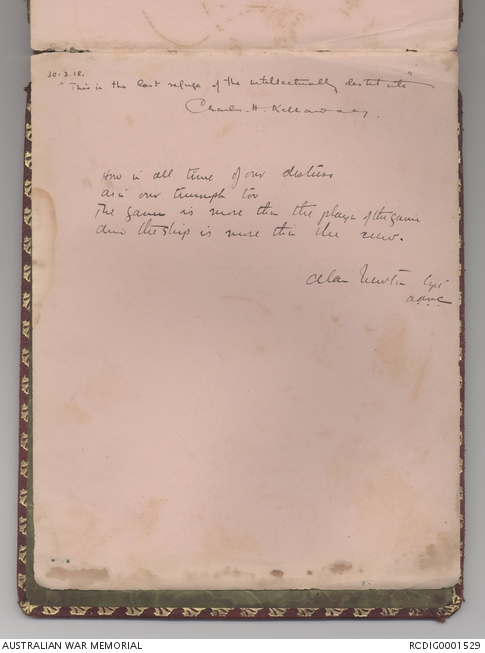 30-3-18.
"This is the last refuge of the intellectually destitute"
Charles. H. Kellaway.
How in all time of our distress
As in our triumph too
The game is more than the player of the game
And the ship is more than the crew.
Alan Newton Capt
AAMC
AUSTRALIAN WAR MEMORIAL
RCDIG0001529